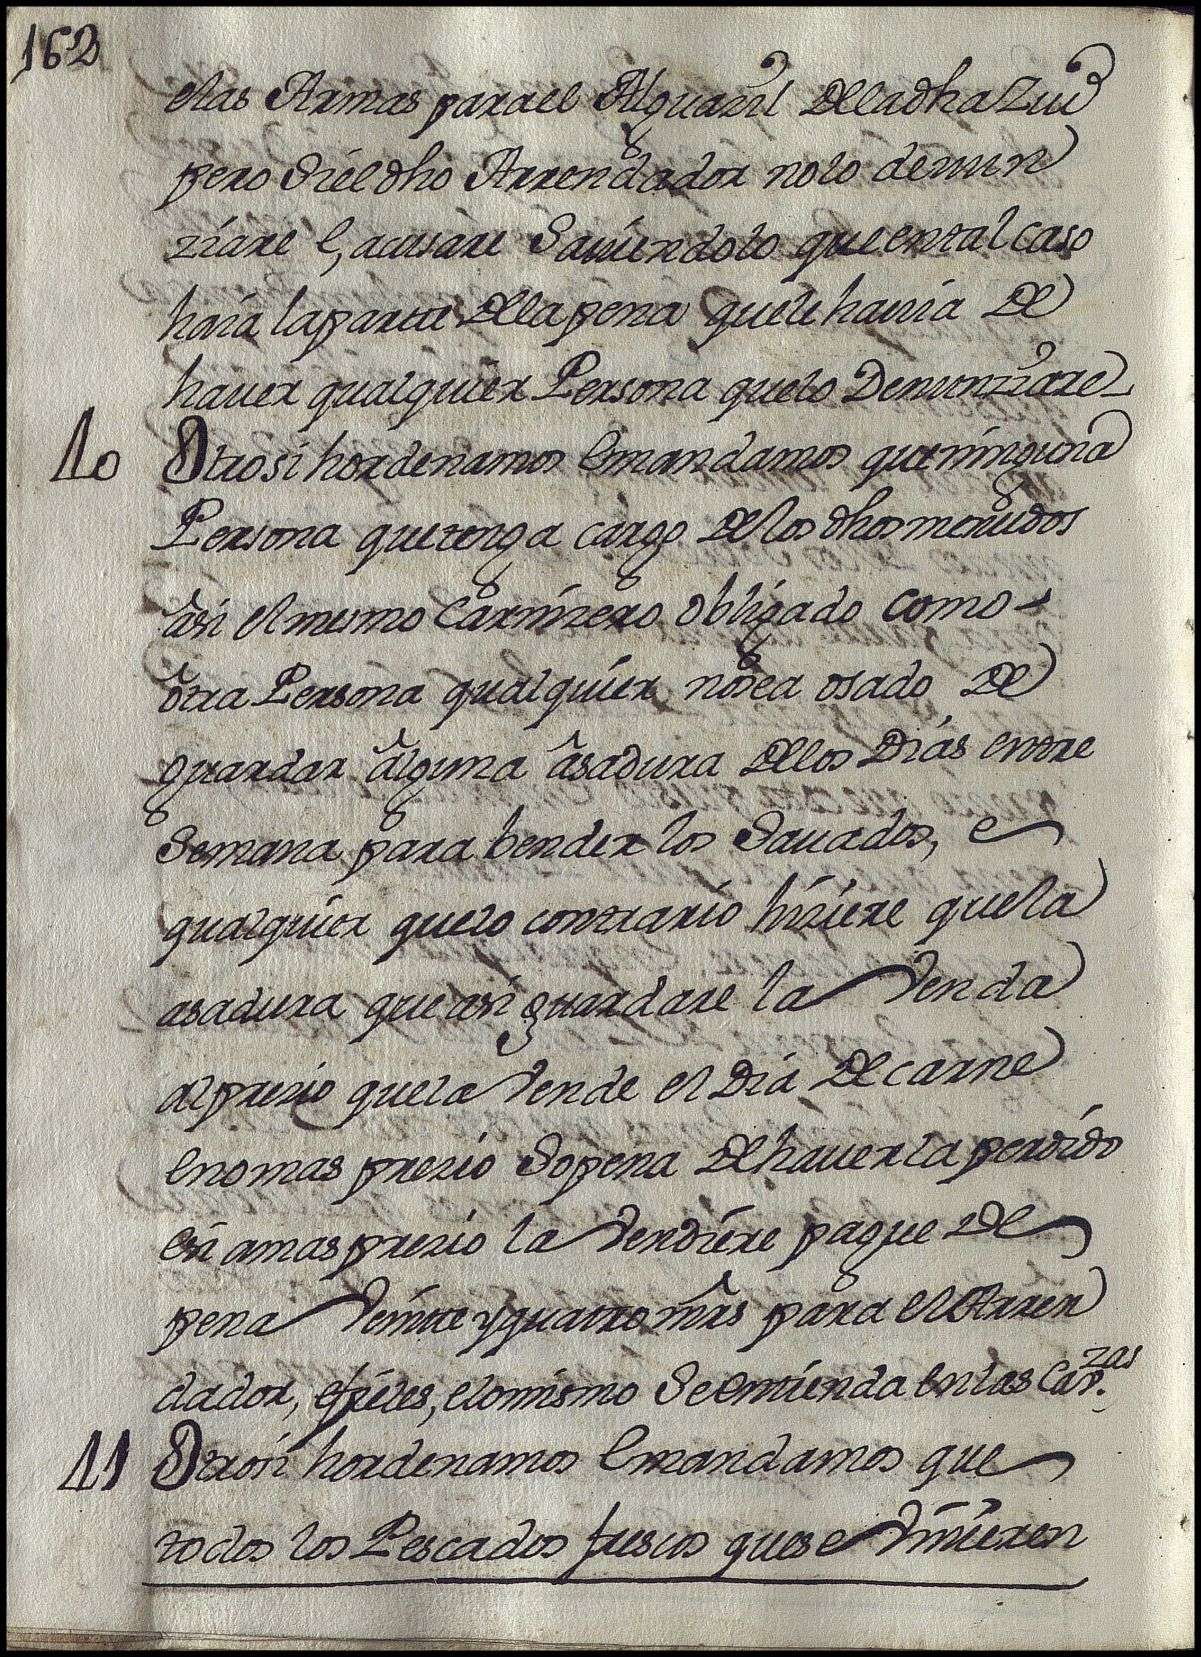 162
elas Armas para el Alguazil Della dha Ziud
pero Si el dho Arrendador nolo denun
ziare l, acusare Sauiendolo que en tal caso
haia la parte Della pena que le hauia De
hauer qualquier Persona quelo Denunziare
10 Otrosi hordenamos Emandamos que ninguna
Persona que tenga cargo Delos dhos menudos
asi el mismo Carnizero obligado como
otra Persona qualquier no sea osado De
guardar alguna asadura Delos Dias entre
Semana para bender los Sauados, e
qualquier quelo contrario hiziere que la
asadura que asi guardare la Venda
al prezio quela Vende el Dia De carne
Eno mas prezio So pena De hauerla perdido
esi amas prezio la Vendiere pague De
pena Veinte y quatro mrs para el Arren
dador, efieles, elo mismo Se entienda en las Car.zas
11 Otrosi hordenamos Emandamos que
todos los Pescados frescos que se Vinieren